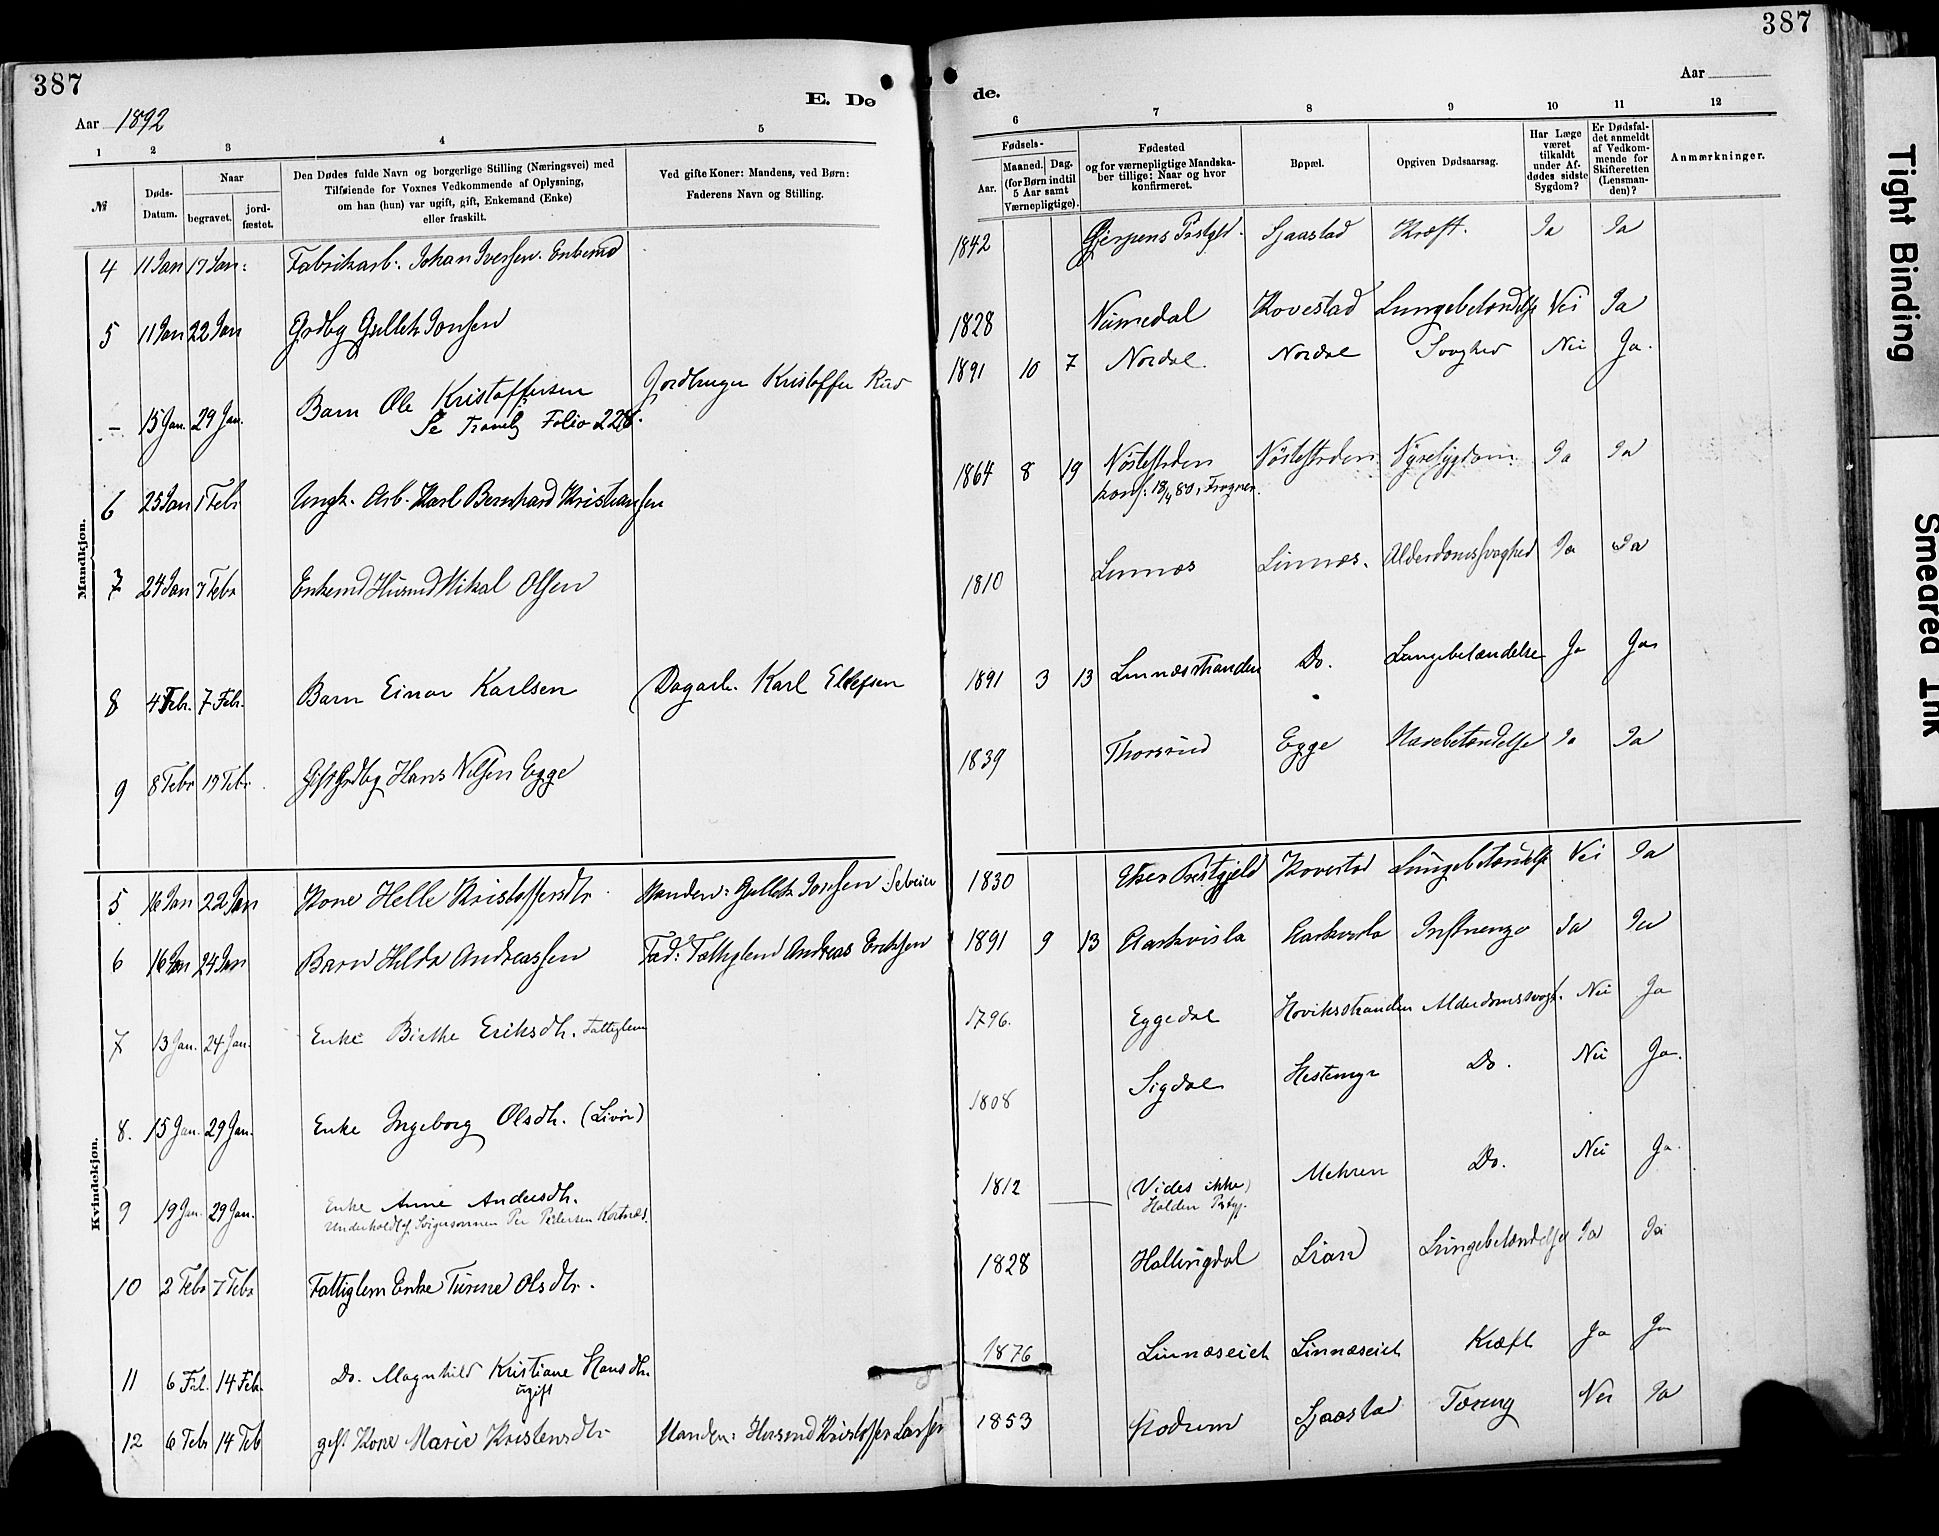 387
387
Aar 1892
E. Dø
de.
Aar
1
2
3
4
5
6
7
8
9
10
11
12
№
Døds-
Datum.
Naar
begravet.
jord-
fæstet.
Den Dødes fulde Navn og borgerlige Stilling (Næringsvei) med
Tilføiende for Voxnes Vedkommende af Oplysning,
om han (hun) var ugift, gift, Enkemand (Enke)
eller fraskilt.
Ved gifte Koner: Mandens, ved Børn:
Faderens Navn og Stilling.
Fødsels-
Aar.
Maaned.
Dag.
(for Børn indtil
5 Aar samt
Værnepligtige).
Fødested
og for værnepligtige Mandska-
ber tillige: Naar og hvor
konfirmeret.
Bopæl.
Opgiven Dødsaarsag.
Har Læge
været
tilkaldt
under Af-
dødes sidste
Sygdom?
Er Dødsfal-
det anmeldt
af Vedkom-
mende for
Skifteretten
(Lensman-
den)?
Anmærkninger.
Mandkjøn.
4 11 Jan 17 Jan: Fabrikarb. Johan Iversen. Enkemd 1842 Gjerpens Prstgld. Sjaastad Kræft. Ja Ja
5 11 Jan 22 Jan Grdbg Gulleik Jonsen 1828 Numedal Kovestad Lungebetændelse Nei Ja
- 15 Jan. 29 Jan. Barn Ole Kristoffersen Jordbruger Kristoffer Rud 1891 10 7 Nordal. Nordal Svaghed Nei Ja.
Se Tranby Folio 228.
6 25 Jan 1 Febr Ungk. Arb. Karl Bernhard Kristiansen 1864 8 19 Nøstestrden Nøstestrden Nyresygdom Ja Ja
konf: 18/4 80, Frogner.
7 24 Jan 7 Febr Enkemd Husmd Mikal Olsen 1810 Linnæs Linnæs. Alderdomssvaghed Ja Ja
8 4 Feb. 7 Feb. Barn Einar Karlsen Dagarb. Karl Ellefsen 1891 3 13 Linnæsstranden Do. Lungebetændelse Ja Ja
9 8 Febr 19 Febr Gift Grdbg Hans Nilsen Egge 1839 Thorsrud Egge Mavebetændelse Ja Ja
Kvindekjøn.
5 16 Jan 22 Jan Kone Helle Kristoffersdtr. Manden: Gulleik Jonsen 1830 Eker Prestgjeld Kovestad Lungebetændelse Nei Ja
6 16 Jan 24 Jan Barn Hilda Andreassen Fad: Fattiglem Andreas Eriksen 1891 9 13 Aaskvisla Aaskvisla Influenza Ja Ja
7 13 Jan. 24 Jan. Enke Birthe Eriksdtr. Fattiglem 1796. Eggedal Hoviksstranden Alderdomssvagh. Nei Ja
8. 15 Jan. 29 Jan. Enke Ingeborg Olsdtr. (Livør) 1808 Sigdal Hestemyr Do. Nei Ja.
9 19 Jan. 29 Jan. Enke Anne Andersdtr. 1812 (Vides ikke) Mehren Do. Nei Ja.
Underholdt af Svigersønnen Per Pedersen Kortnæs. Holden Prstgj.
10 2 Febr 7 Febr Fattiglem Enke Turine Olsdtr. 1828 Hallingdal Lian Lungebetændelse Ja Ja
11 6 Feb. 14 Feb. Do. Magnhild Kristiane Hansdtr. 1876 Linnæseiet Linnæseiet Kræft Ja Ja
ugift
12 6 Febr 14 Feb gift Kone Marie Kristensdtr Manden: Husmd Kristoffer Larsen 1853 Modum Sjaastad Tæring Nei Ja
Tight Binding
Smeared Ink